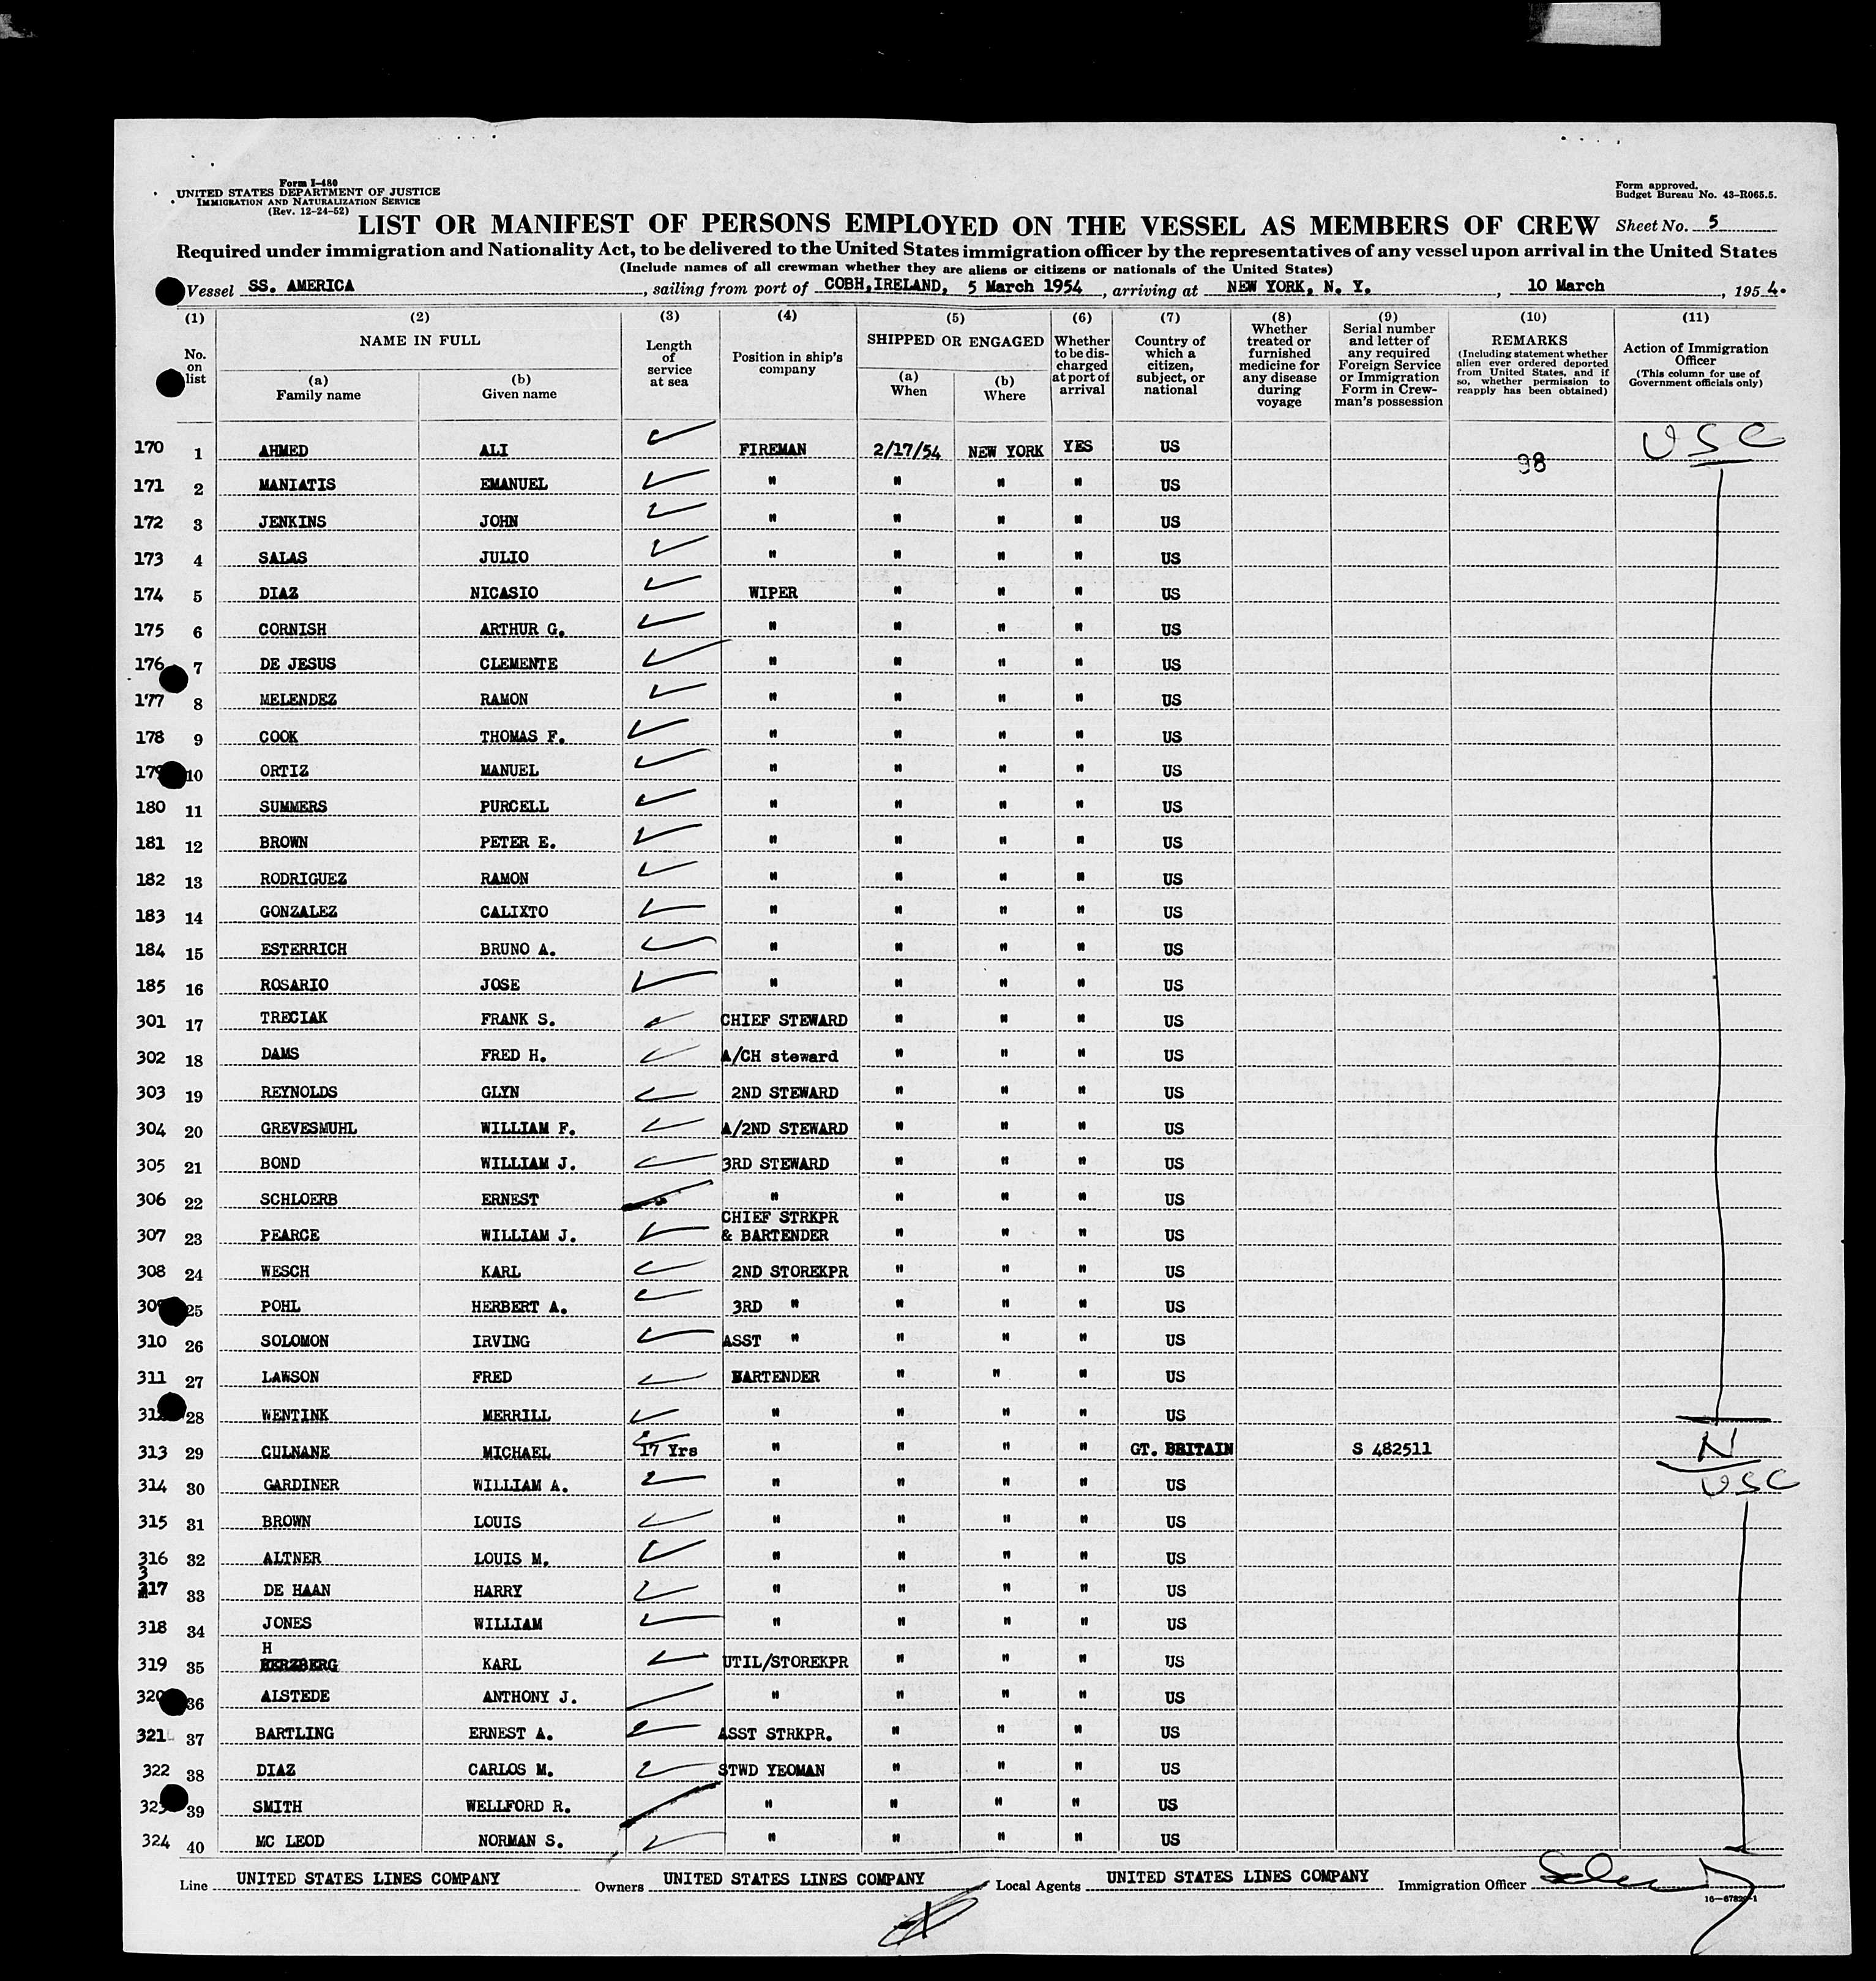 Form I-480
UNITED STATES DEPARTMENT OF JUSTICE
IMMIGRATION AND NATURALIZATION SERVICE
(Rev. 12-24-52)
Form approved.
Budget Bureau No. 43-R065.5.
LIST OR MANIFEST OF PERSONS EMPLOYED ON THE VESSEL AS MEMBERS OF CREW Sheet No. 5
Required under immigration and Nationality Act, to be delivered to the United States immigration officer by the representatives of any vessel upon arrival in the United States
(Include names of all crewman whether they are aliens or citizens or nationals of the United States)
Vessel SS. AMERICA, sailing from port of COBH, IRELAND, 5 March 1954, arriving at NEW YORK, N. Y., 10 March, 1954.
(1) (2) (3) (4) (5) (6) (7) (8) (9) (10) (11)
No. on list
NAME IN FULL
(a) Family name
(b) Given name
Length of service at sea
Position in ship's company
SHIPPED OR ENGAGED
(a) When
(b) Where
Whether to be discharged at port of arrival
Country of which a citizen, subject, or national
Whether treated or furnished medicine for any disease during voyage
Serial number and letter of any required Foreign Service or Immigration Form in Crewman's possession
REMARKS
(Including statement whether alien ever ordered deported from United States, and if so, whether permission to reapply has been obtained)
Action of Immigration Officer
(This column for use of Government officials only)
170 1 AHMED ALI FIREMAN 2/17/54 NEW YORK YES US 98 USC
171 2 MANIATIS EMANUEL " " " " US
172 3 JENKINS JOHN " " " " US
173 4 SALAS JULIO " " " " US
174 5 DIAZ NICASIO WIPER " " " US
175 6 CORNISH ARTHUR G. " " " " US
176 7 DE JESUS CLEMENTE " " " " US
177 8 MELENDEZ RAMON " " " " US
178 9 COOK THOMAS F. " " " " US
179 10 ORTIZ MANUEL " " " " US
180 11 SUMMERS PURCELL " " " " US
181 12 BROWN PETER E. " " " " US
182 13 RODRIGUEZ RAMON " " " " US
183 14 GONZALEZ CALIXTO " " " " US
184 15 ESTERRICH BRUNO A. " " " " US
185 16 ROSARIO JOSE " " " " US
301 17 TRECIAK FRANK S. CHIEF STEWARD " " " US
302 18 DAMS FRED H. A/CH steward " " " US
303 19 REYNOLDS GLYN 2ND STEWARD " " " US
304 20 GREVESMUHL WILLIAM F. A/2ND STEWARD " " " US
305 21 BOND WILLIAM J. 3RD STEWARD " " " US
306 22 SCHLOERB ERNEST " " " " US
307 23 PEARCE WILLIAM J. CHIEF STRKPR & BARTENDER " " " US
308 24 WESCH KARL 2ND STOREKPR " " " US
309 25 POHL HERBERT A. 3RD " " " " US
310 26 SOLOMON IRVING ASST " " " " US
311 27 LAWSON FRED BARTENDER " " " US
312 28 WENTINK MERRILL " " " " US
313 29 CULNANE MICHAEL 17 Yrs " " " " GT. BRITAIN S 482511 N
314 30 GARDINER WILLIAM A. " " " " US USC
315 31 BROWN LOUIS " " " " US
316 32 ALTNER LOUIS M. " " " " US
317 33 DE HAAN HARRY " " " " US
318 34 JONES WILLIAM " " " " US
319 35 HERZBERG KARL UTIL/STOREKPR " " " US
320 36 ALSTEDE ANTHONY J. " " " " US
321 37 BARTLING ERNEST A. ASST STRKPR. " " " US
322 38 DIAZ CARLOS M. STWD YEOMAN " " " US
323 39 SMITH WELLFORD R. " " " " US
324 40 MC LEOD NORMAN S. " " " " US
Line UNITED STATES LINES COMPANY Owners UNITED STATES LINES COMPANY Local Agents UNITED STATES LINES COMPANY Immigration Officer